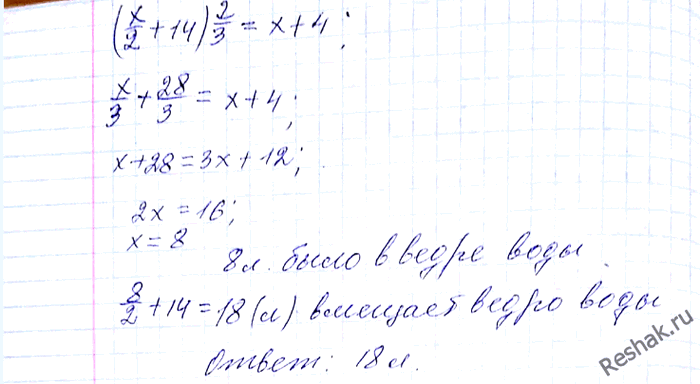 (x/2 + 14) 2/3 = x + 4;
x/3 + 28/3 = x + 4;
x + 28 = 3x + 12;
2x = 16;
x = 8
8 л. было в ведре воды
8/2 + 14 = 18 (л) вмещает ведро воды
Ответ: 18 л.
Reshak.ru